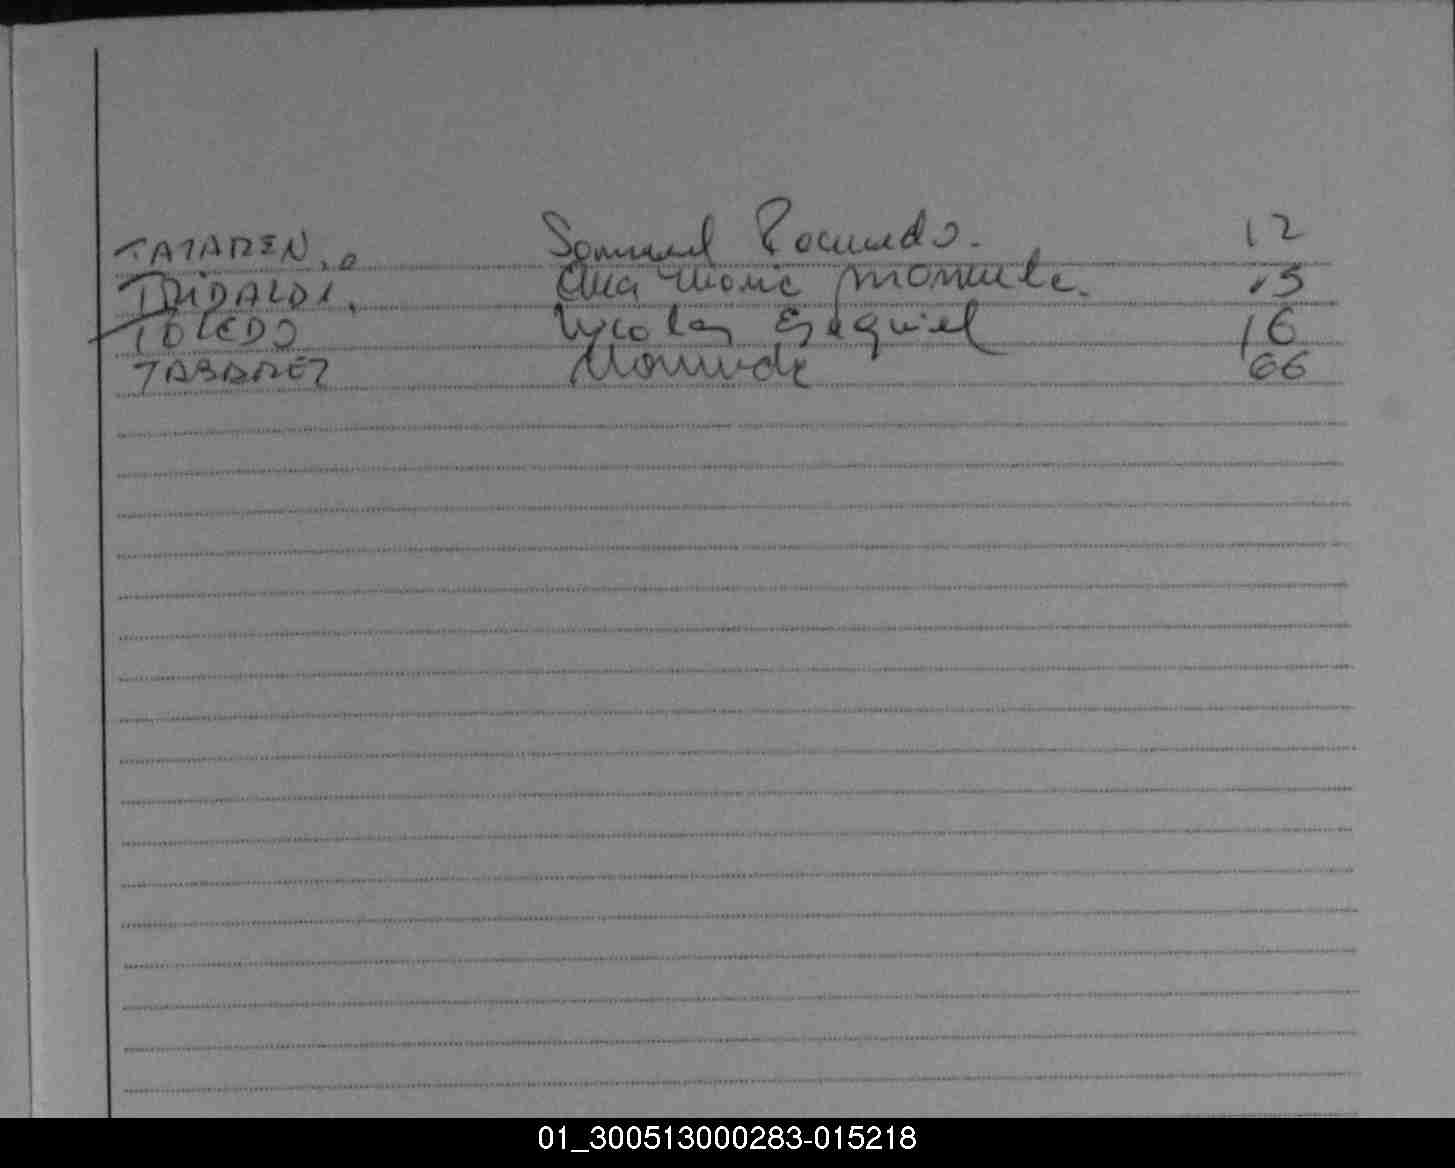 TATAREN. Samuel Facundo. 12
TRIDALDI. Ana Maria Manuela. 15
TOLEDO Nycolas Esequiel 16
TABAREZ 66
01_300513000283-015218